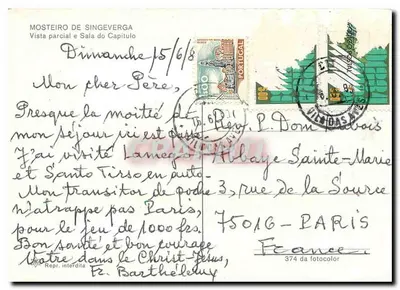 MOSTEIRO DE SINGEVERGA
Vista parcial e Sala do Capítulo
Dimanche 15/6/8
Mon cher Père,
Presque la moitié de
mon séjour ici est
J'ai visité
et Santo Tirso en auto
Mon transitor de poche
n'attrape pas Paris,
pour le jeu de 1000 frs.
Bon santé et bon courage
Vôtre dans le Christ-Jésus,
Fr. Barthélemy
Repr. interdite
1$00
PORTUGAL
VILA DAS AVES
Rev. P. Dom
Abbaye Sainte-Marie
3, rue de la Source
75016-PARIS
France
374 da fotocolor